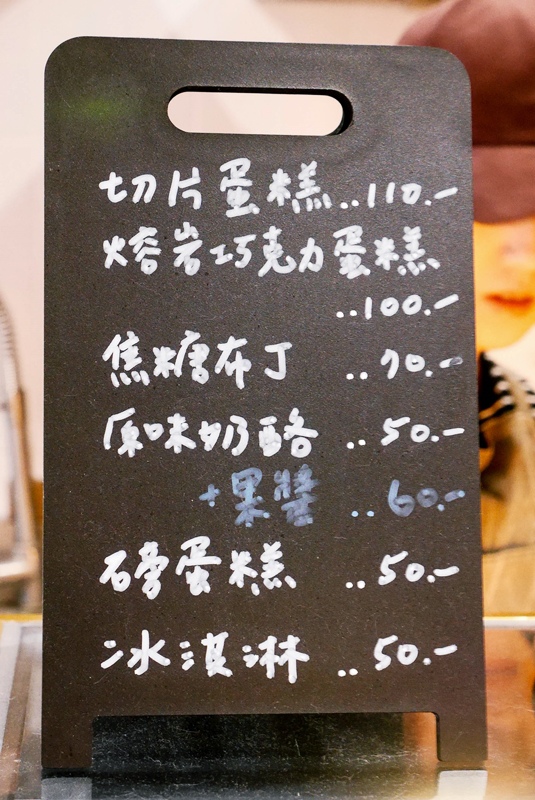 切片蛋糕..110.-
熔岩巧克力蛋糕
..100.-
焦糖布丁 ..70.-
原味奶酪 ..50.-
+果醬 ..60.-
石膏蛋糕 ..50.-
冰淇淋 ..50.-